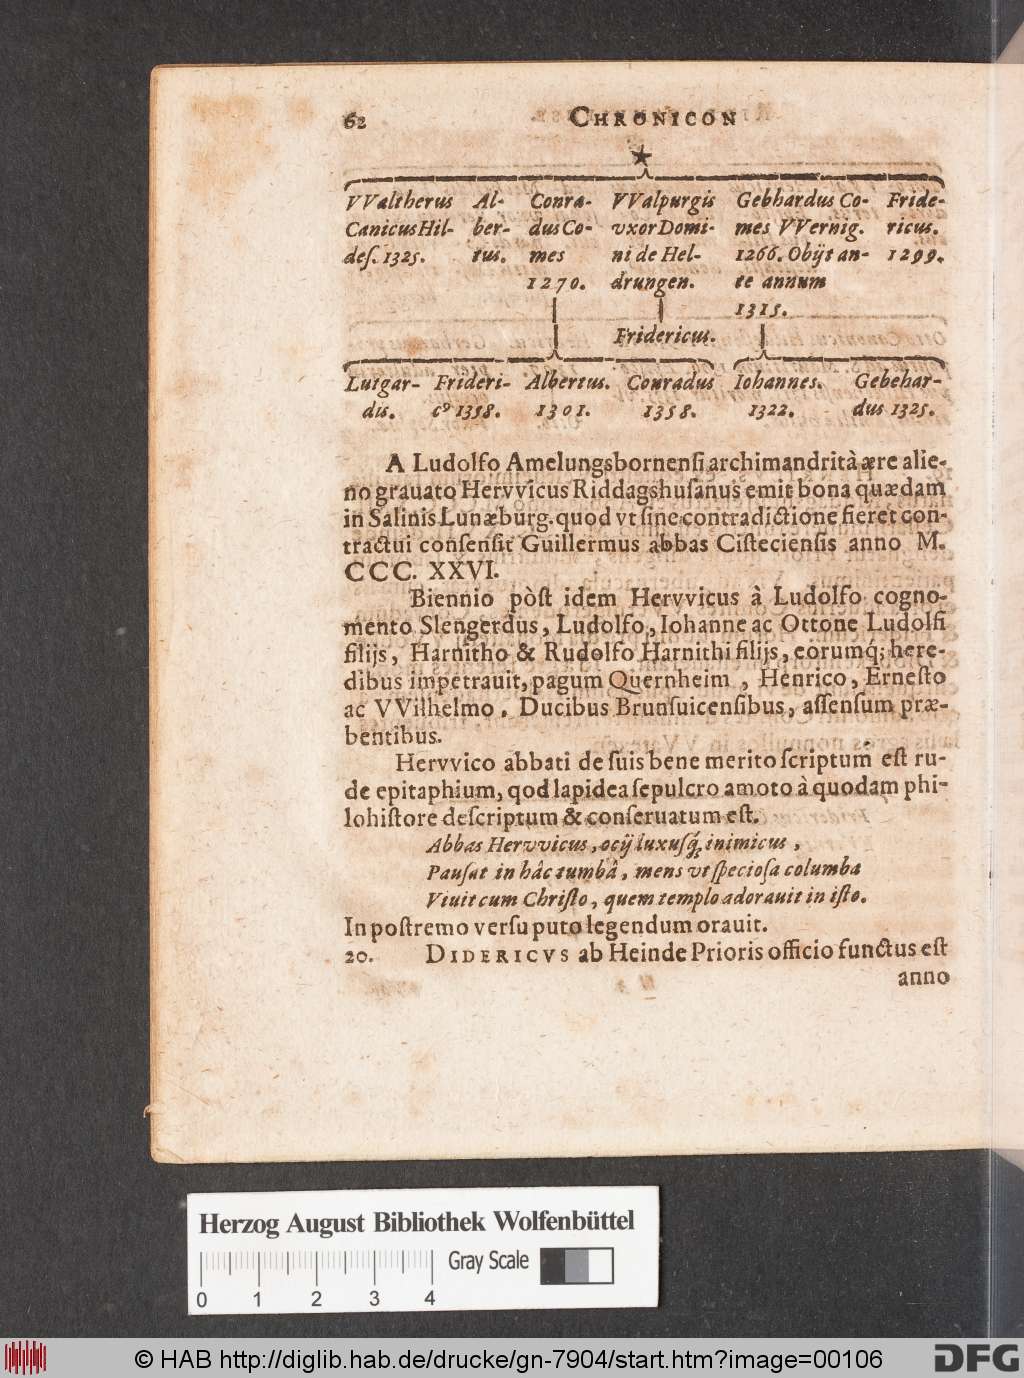 62 CHRONICON
VValtherus Al- Conra- VValpurgis Gebhardus Co- Fride-
Canicus Hil- ber- dus Co- vxor Domi- mes VVernig. ricus.
des. 1325. tus. mes ni de Hel- 1266. Obijt an- 1299.
1270. drungen. te annum
1315.
Fridericus.
Lutgar- Frideri- Albertus. Conradus Iohannes. Gebehar-
dis. cꝰ 1358. 1301. 1358. 1322. dus 1325.
A Ludolfo Amelungsbornensi archimandritâ ære alie-
no grauato Hervvicus Riddagshusanus emit bona quædam
in Salinis Lunæburg. quod vt sine contradictione fieret con-
tractui consensit Guillermus abbas Cisteciensis anno M.
CCC. XXVI.
Biennio pòst idem Hervvicus à Ludolfo cogno-
mento Slengerdus, Ludolfo, Iohanne ac Ottone Ludolfi
filijs, Harnitho & Rudolfo Harnithi filijs, eorumq́; here-
dibus impetrauit, pagum Quernheim, Henrico, Ernesto
ac VVilhelmo, Ducibus Brunsuicensibus, assensum præ-
bentibus.
Hervvico abbati de suis bene merito scriptum est ru-
de epitaphium, qod lapidea sepulcro amoto à quodam phi-
lohistore descriptum & conseruatum est.
Abbas Hervvicus, ocij luxusq́; inimicus,
Pausat in hâc tumbâ, mens vt speciosa columba
Viuit cum Christo, quem templo adorauit in isto.
In postremo versu puto legendum orauit.
20. DIDERICVS ab Heinde Prioris officio functus est
anno
Herzog August Bibliothek Wolfenbüttel
Gray Scale
0 1 2 3 4
© HAB http://diglib.hab.de/drucke/gn-7904/start.htm?image=00106
DFG